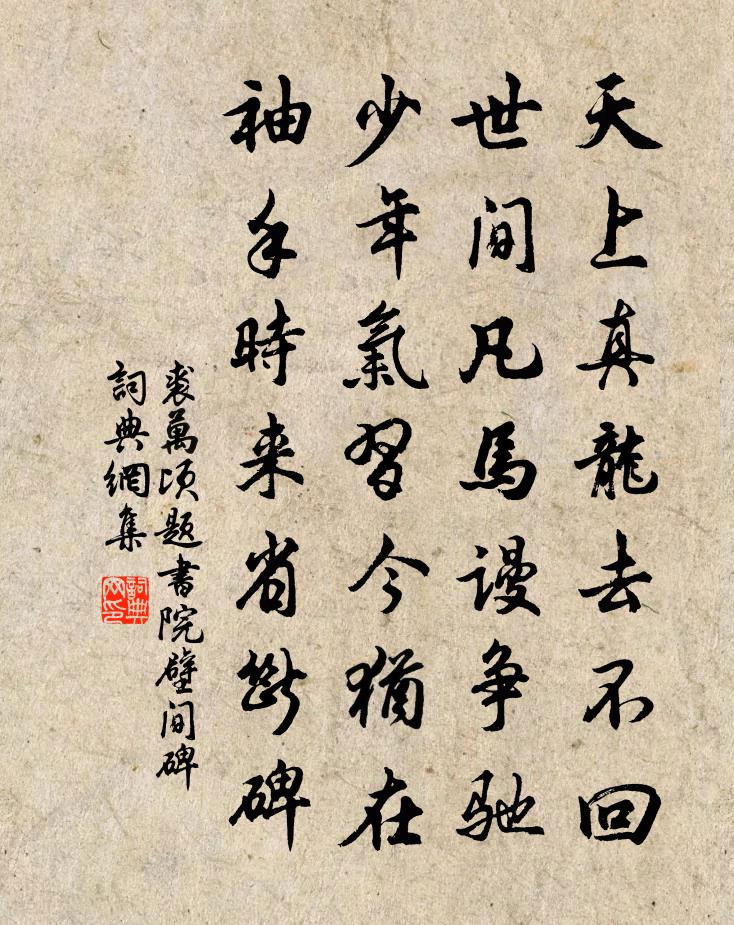 天上真龍去不回
世间凡馬謾争驰
少年氣習今猶在
袖手時来省斷碑
裘萬頃題書院壁间碑
詞典網集
詞典网印